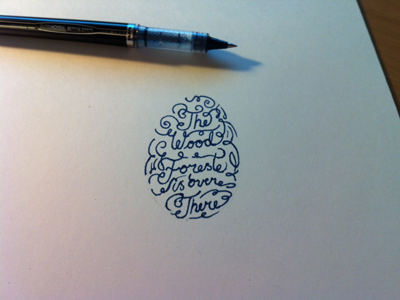 The
Wood
Foreste
is overe
There